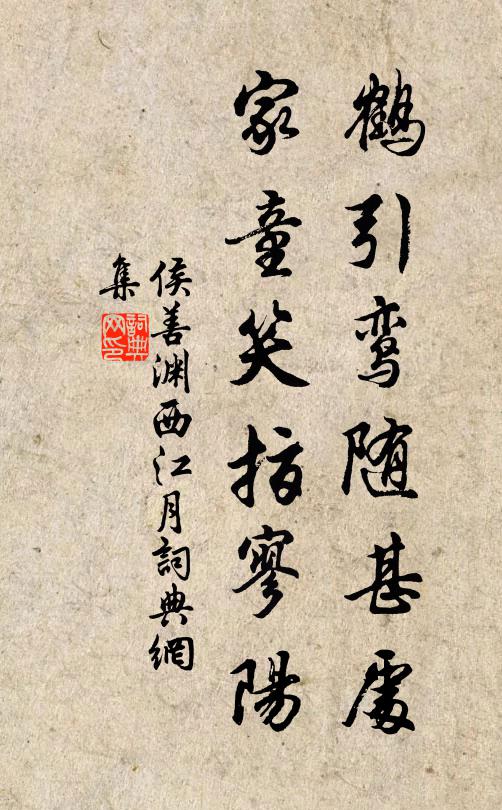 鶴引鸾随甚處
家童笑指寥陽
侯善渊西江月詞典網
集
詞典网印